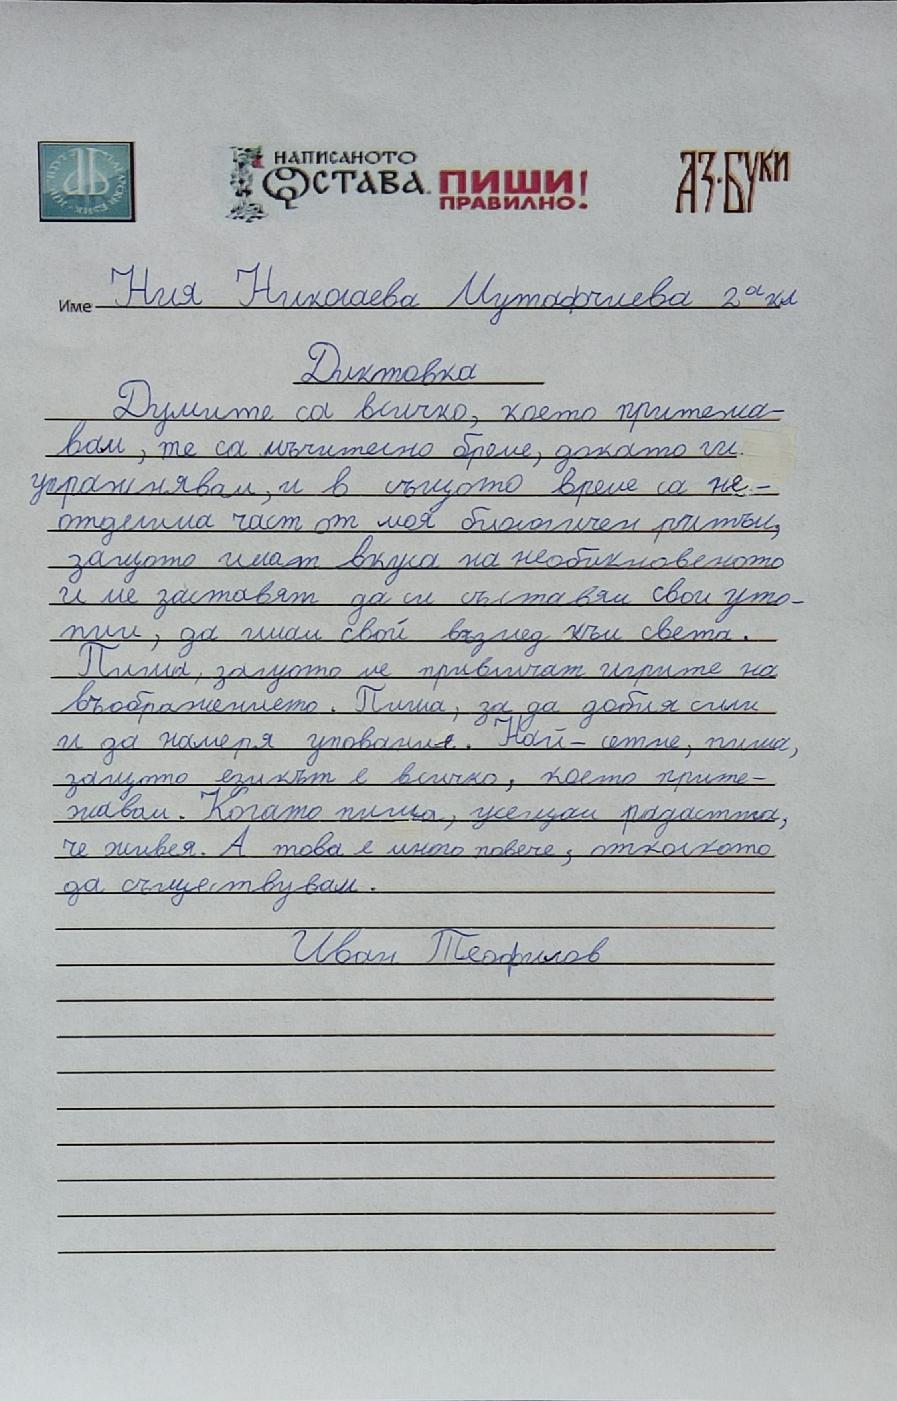 НАПИСАНОТО
ОСТАВА. ПИШИ!
ПРАВИЛНО!
АЗ·БУКИ
Име Ния Николаева Мутафчиева 2а кл
Диктовка
Думите са всичко, което притежа-
вам, те са мъчително бреме, докато ги
упражнявам, и в същото време са не-
отделима част от моя биологичен ритъм,
защото имат вкуса на необикновеното
и ме заставят да си съставям свои уто-
пии, да имам свой възглед към света.
Пиша, защото ме привличат игрите на
въображението. Пиша, за да добия сили
и да намеря упование. Най-сетне, пиша,
защото езикът е всичко, което прите-
жавам. Когато пиша, усещам радостта,
че живея. А това е много повече, отколкото
да съществувам.
Иван Теофилов